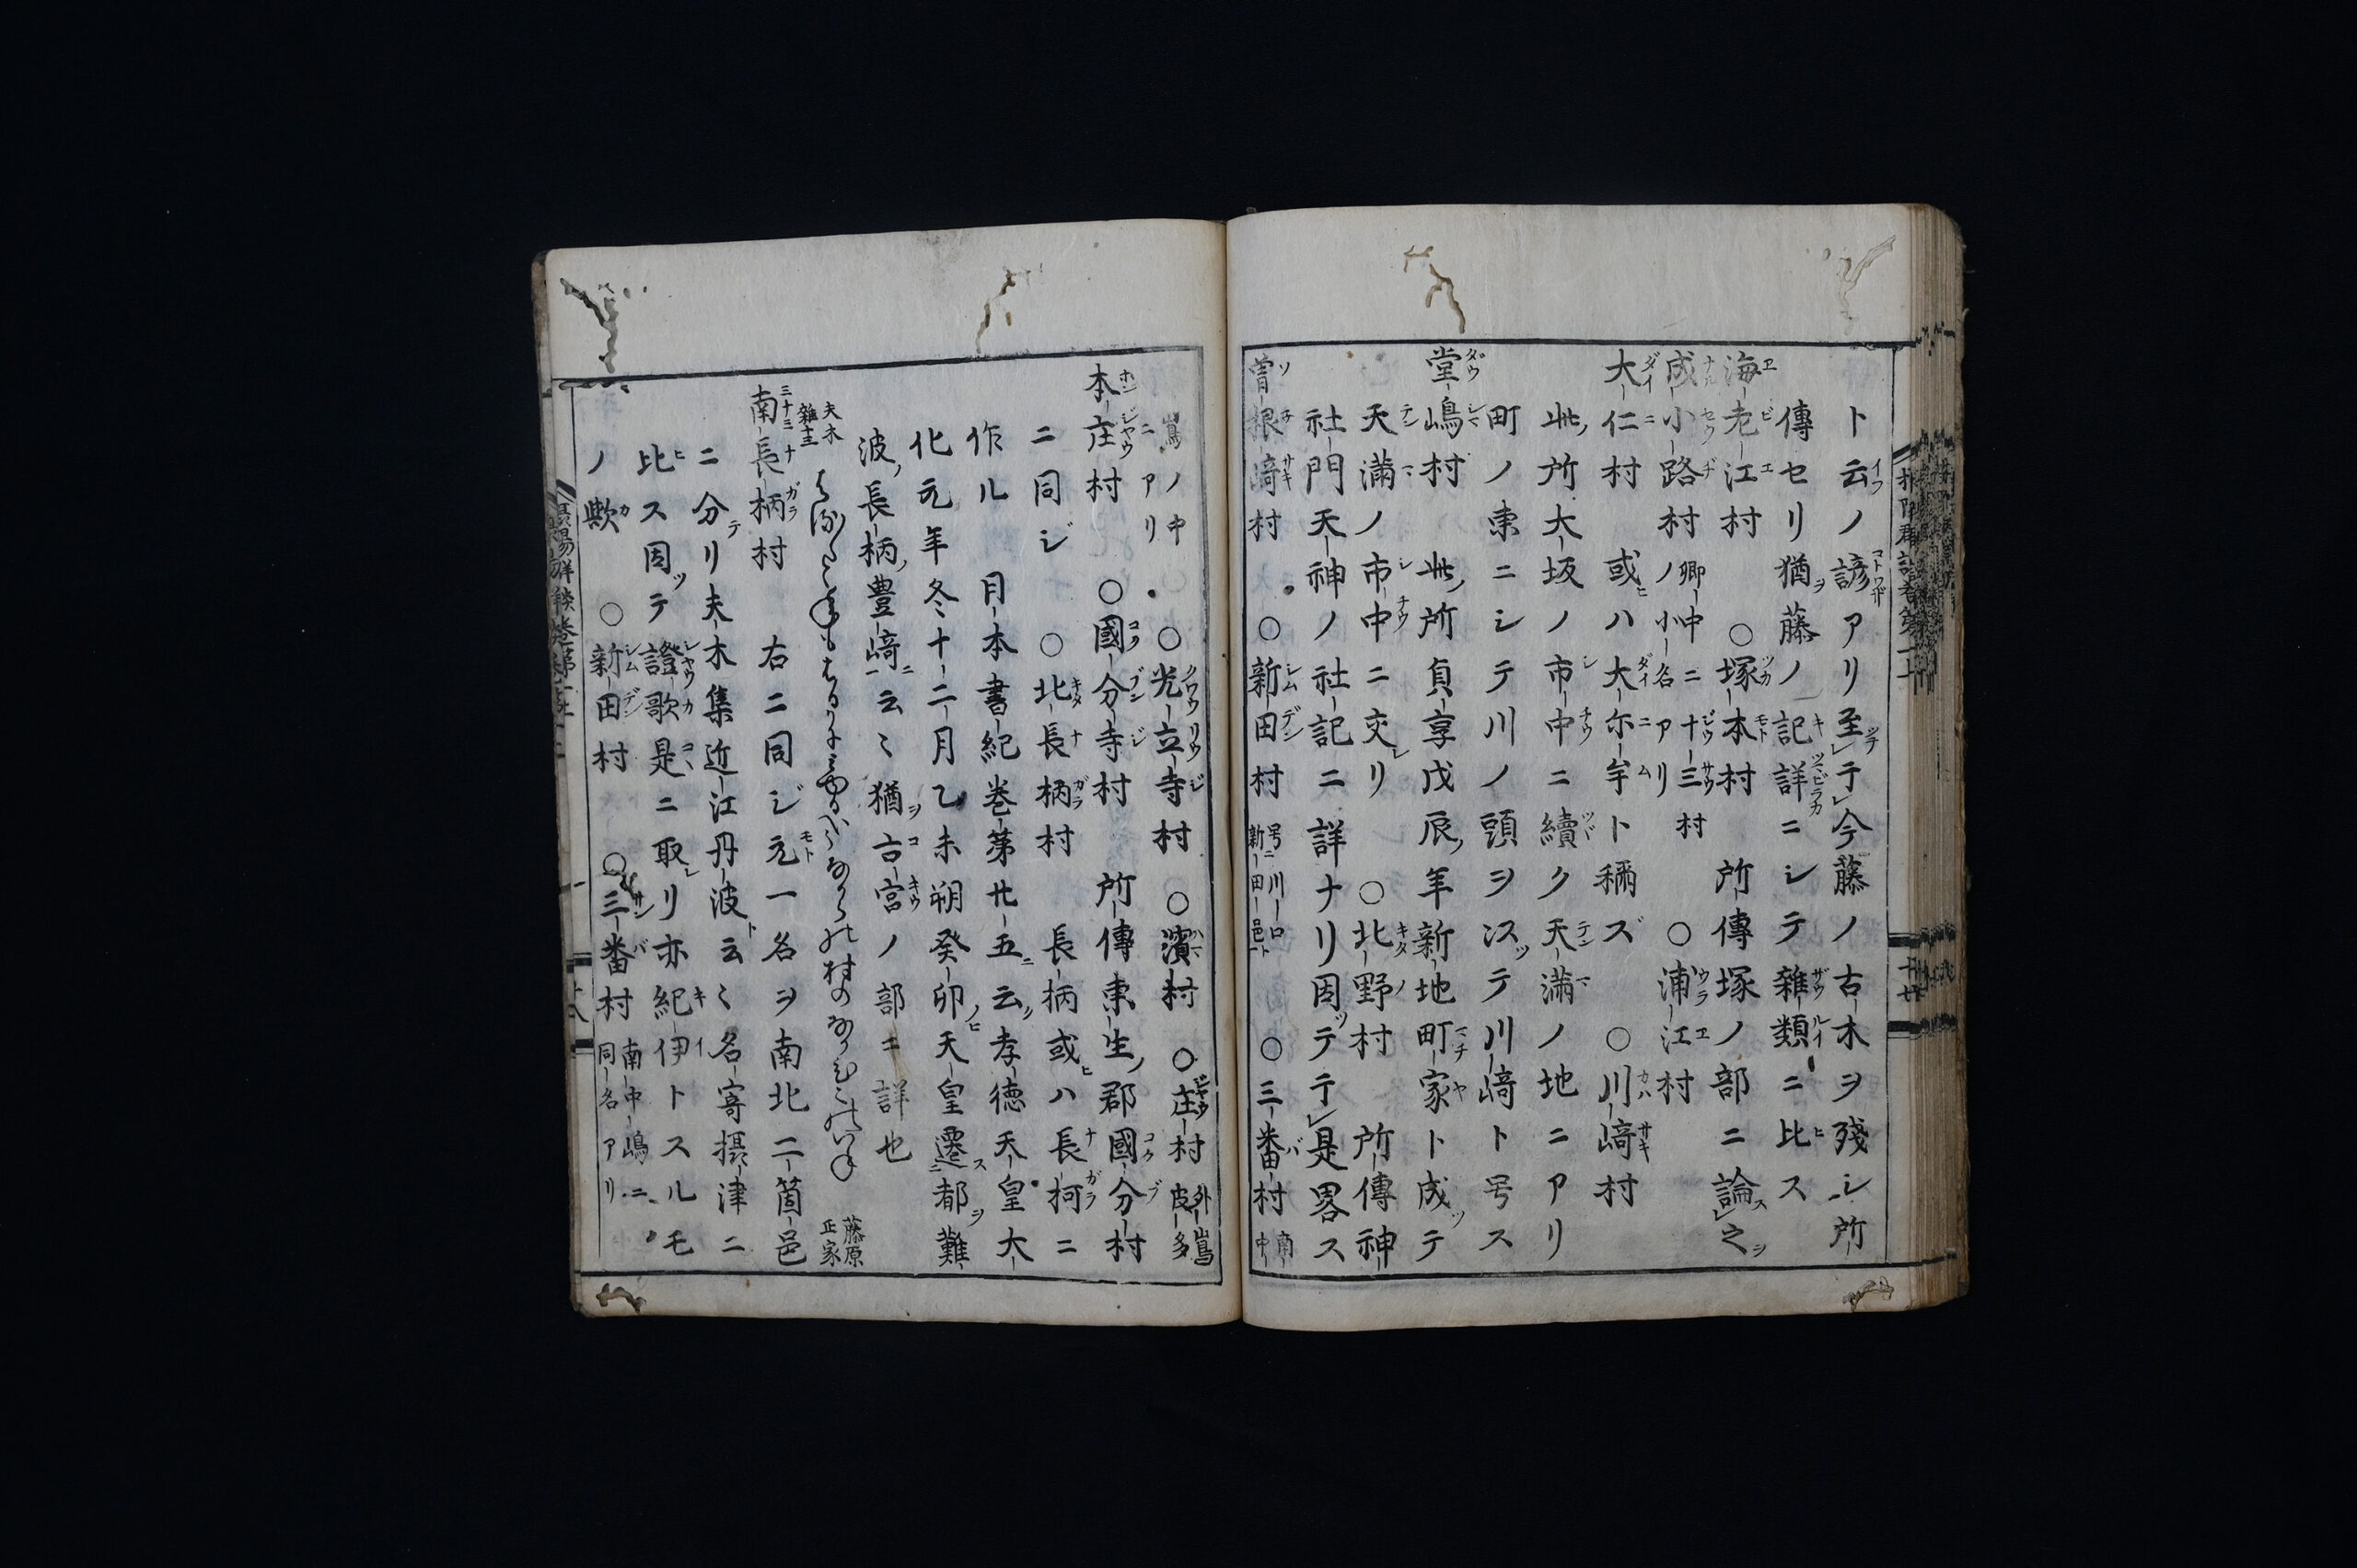 ト云ノ諺アリ至テ今藤ノ古木ヲ殘シ所
傳セリ猶藤ノ記詳ニシテ雜類ニ比ス
海老江村 ○塚本村 所傳塚ノ部ニ論之
成小路村 郷中ニ十三村ノ小名アリ ○浦江村
大仁村 或ハ大尓牟ト稱ズ ○川﨑村
此所大坂ノ市中ニ續ク天滿ノ地ニアリ
町ノ東ニシテ川ノ頭ヲ次テ川﨑ト号ス
堂嶋村 此所貞享戊辰年新地町家ト成テ
天滿ノ市中ニ交リ ○北野村 所傳神
社門天神ノ社記ニ詳ナリ因テ是畧ス
曽根﨑村 ○新田村 号川口新田邑ト ○三番村 南中
嶌ノ中ニアリ ○光立寺村 ○濱村 ○庄村 外嶌皮多
本庄村 ○國分寺村 所傳東生郡國分村
ニ同ジ ○北長柄村 長柄或ハ長柯ニ
作ル 日本書紀巻第廿五云孝徳天皇大
化元年冬十二月乙未朔癸卯天皇遷都難
波長柄豊﨑云々猶古宮ノ部ニ詳也
夫木雜十三 藤原正家
南長柄村 右ニ同ジ元一名ヲ南北二箇邑
ニ分リ夫木集近江丹波云々名寄摂津ニ
比ス因テ證歌是ニ取リ亦紀伊トスルモ
ノ歟 ○新田村 ○三番村 南中嶋ニ同名アリ